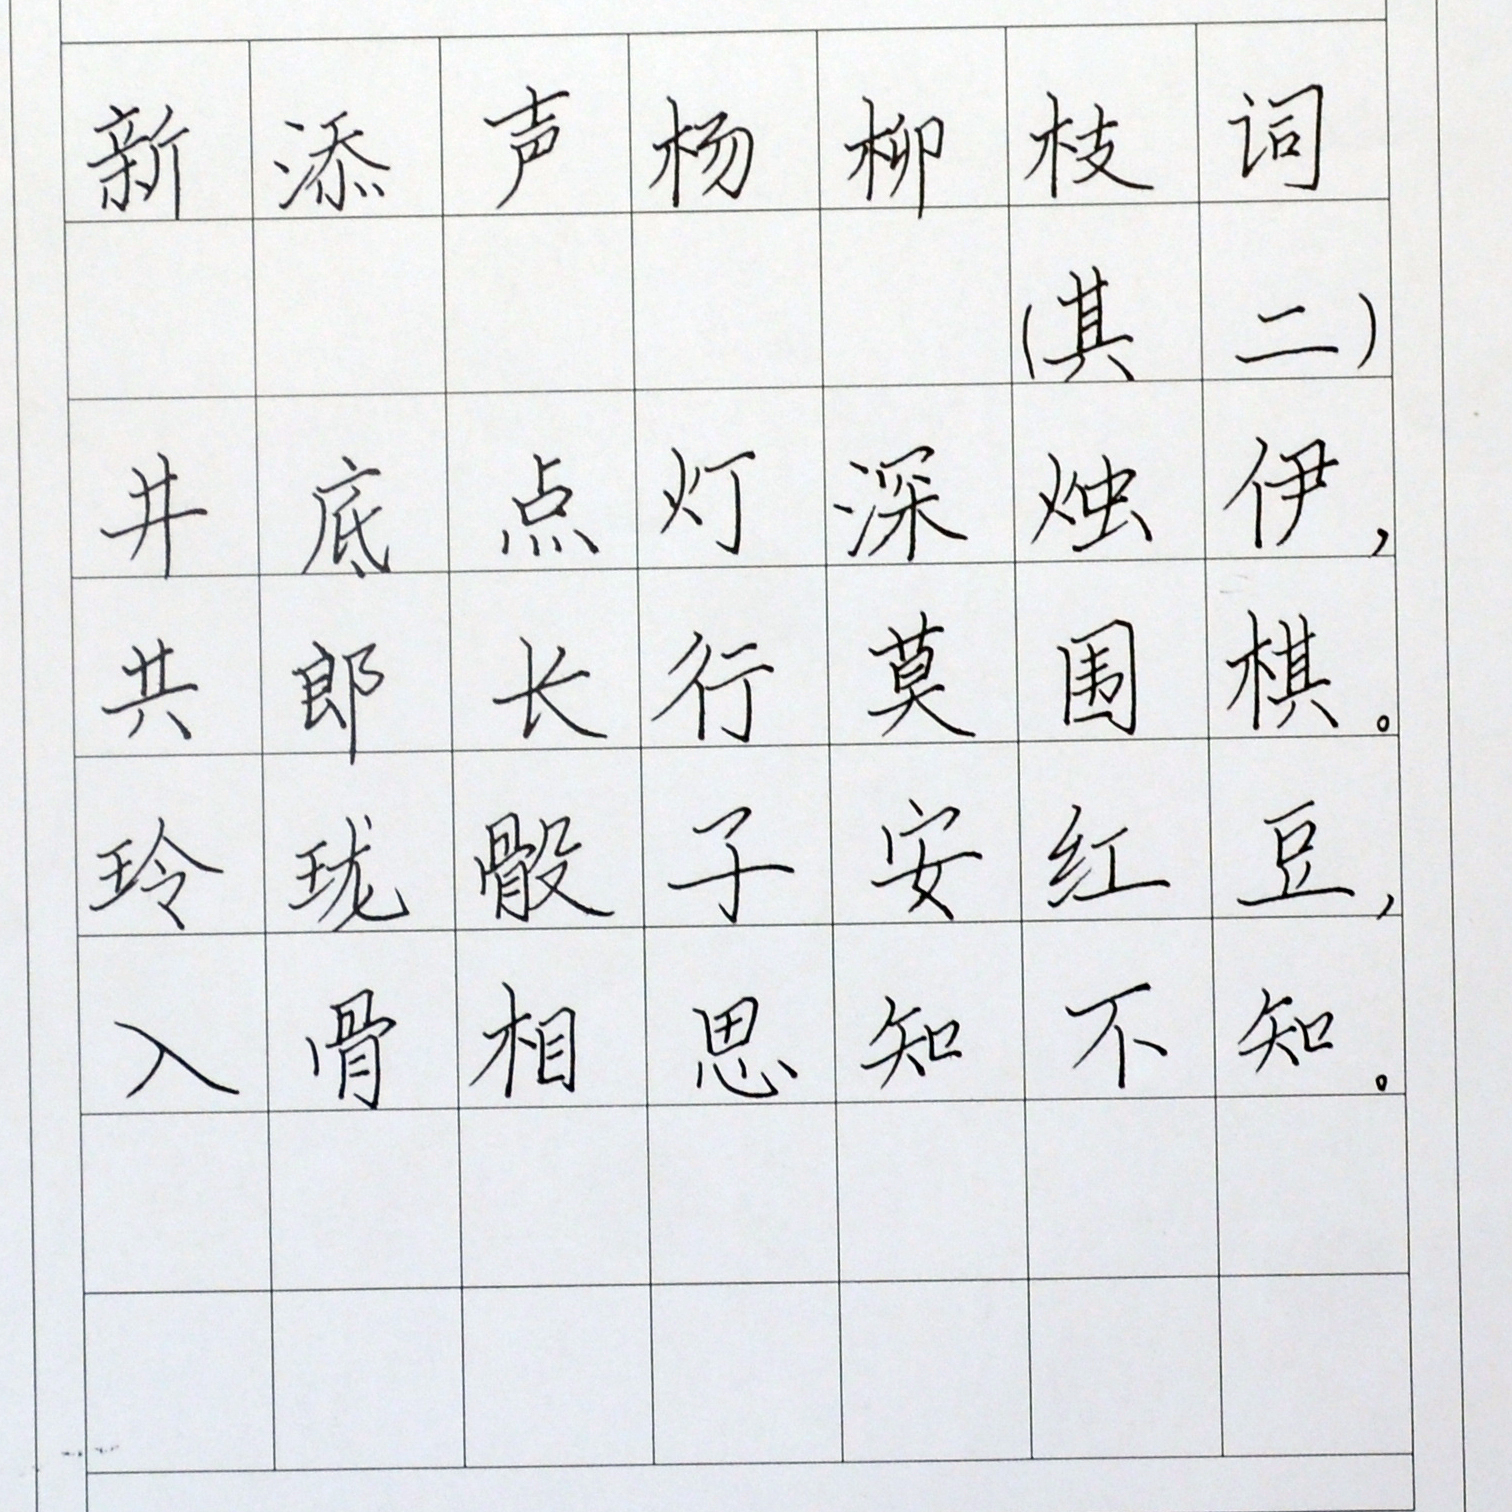 新添声杨柳枝词
(其二)
井底点灯深烛伊,
共郎长行莫围棋。
玲珑骰子安红豆,
入骨相思知不知。